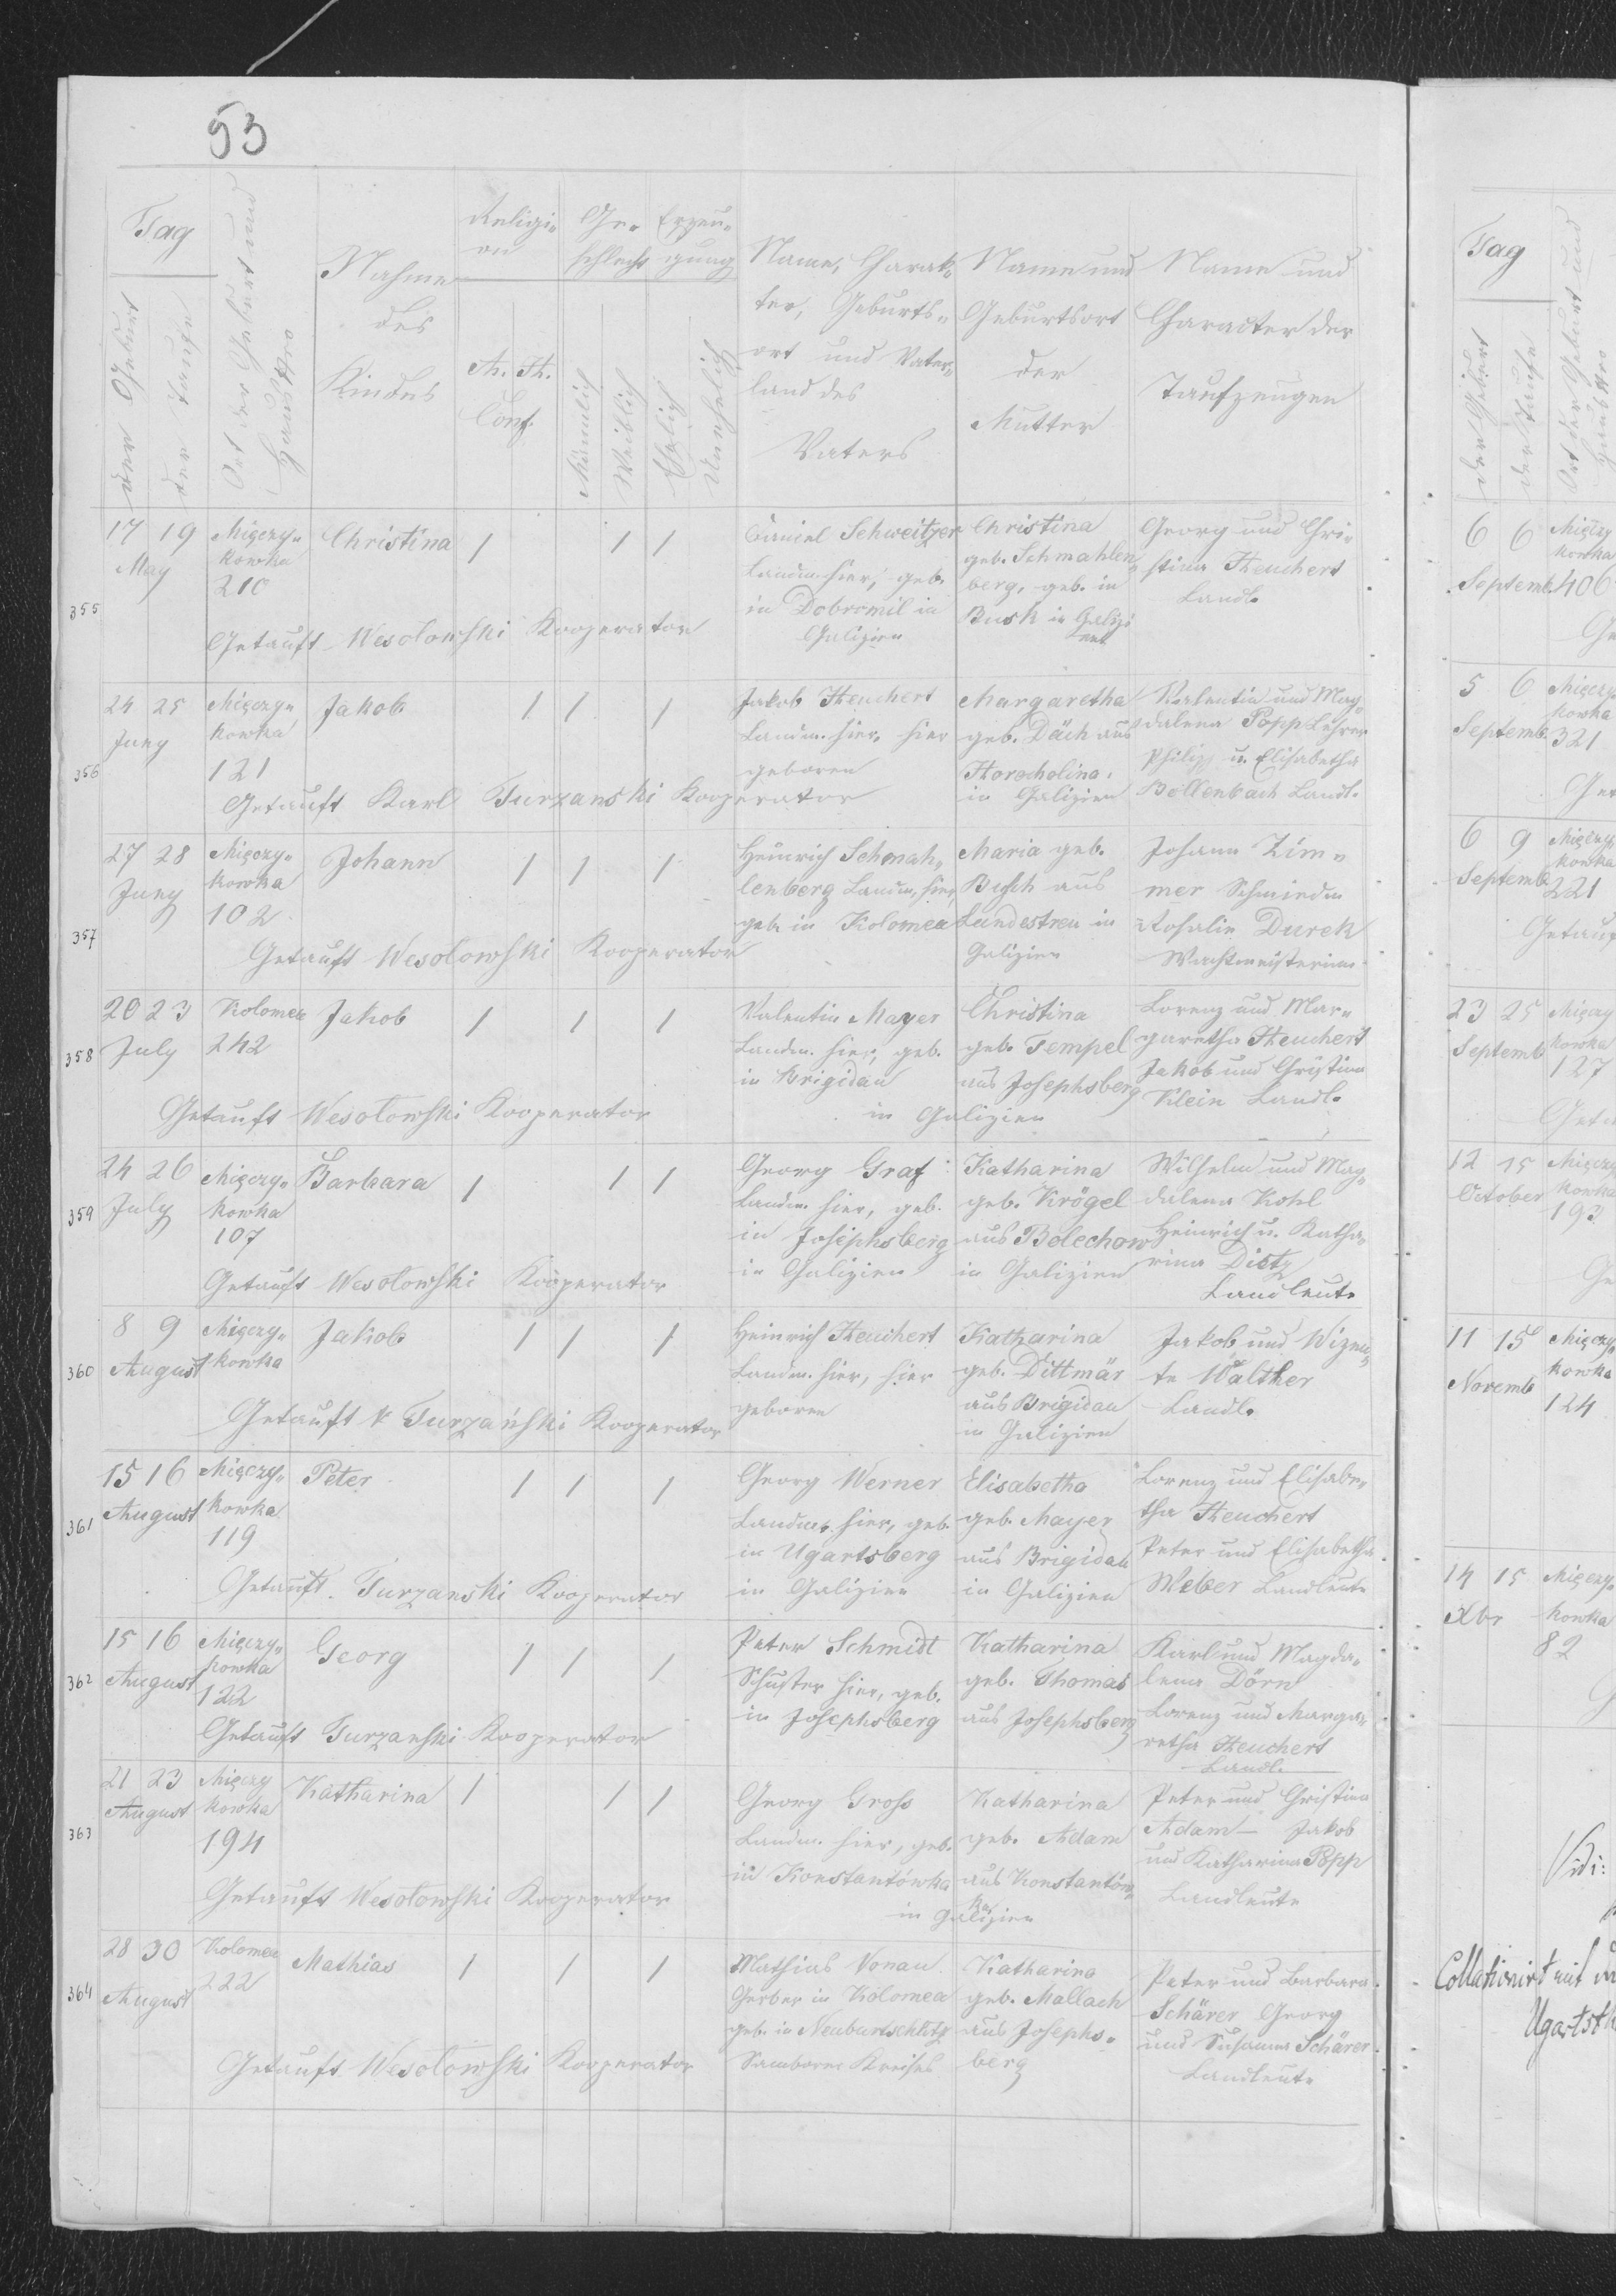 53
Tag
der Geburt
der Taufe
Ort der Geburt und
Haus Nro
Nahme
des
Kindes
Religi-
on
A. H.
Conf.
Ge-
schlecht
Männlich
Weiblich
Erzeu-
gung
Ehelich
Unehelich
Name, Charak-
ter, Geburts-
ort und Vater-
land des
Vaters
Name und
Geburtsort
der
Mutter
Name und
Character der
Taufzeugen
355
17 19
May
Mięczy-
kowka
210
Christina
/ / /
Daniel Schweitzer
Landm. hier, geb.
in Dobromil in
Galizien
Christina
geb. Schmahlen-
berg, geb. in
Busk in Galizi-
en
Georg und Chri-
stina Heuchert
Landl.
Getauft Wesolowski Kooperator
356
24 25
Juny
Mięczy-
kowka
121
Jakob
/ / /
Jakob Heuchert
Landm. hier, hier
geboren
Margaretha
geb. Däch aus
Horocholina
in Galizien
Valentin und Mag-
dalena Popp Lehrer
Philip u. Elisabetha
Bollenbach Landl.
Getauft Karl Turzanski Kooperator
357
27 28
Juny
Mięczy-
kowka
102
Johann
/ / /
Heinrich Schmah-
lenberg Landm. hier,
geb. in Kolomea
Maria geb.
Busch aus
Landestreu in
Galizien
Johann Zim-
mer Schmiedm
Rosalie Durek
Wachtmeisterinn
Getauft Wesolowski Kooperator
358
20 23
July
Kolomea
242
Jakob
/ / /
Valentin Mayer
Landm. hier, geb.
in Brigidau
Christina
geb. Tempel
aus Josephsberg
in Galizien
Lorenz und Mar-
garetha Heuchert
Jakob und Christina
Klein Landl.
Getauft Wesolowski Kooperator
359
24 26
July
Mięczy-
kowka
107
Barbara
/ / /
Georg Graf
Landm. hier, geb.
in Josephsberg
in Galizien
Katharina
geb. Krögel
aus Bolechow
in Galizien
Wilhelm und Mag-
dalena Kohl
Heinrich u. Katha-
rina Dietz
Landleute
Getauft Wesolowski Kooperator
360
8 9
August
Mięczy-
kowka
Jakob
/ / /
Heinrich Heuchert
Landm. hier, hier
geboren
Katharina
geb. Dittmär
aus Brigidau
in Galizien
Jakob und
Walther
Landl.
Getauft K Turzański Kooperator
361
15 16
August
Mięczy-
kowka
119
Peter
/ / /
Georg Werner
Landm. hier, geb.
in Ugartsberg
in Galizien
Elisabetha
geb. Mayer
aus Brigidau
in Galizien
Lorenz und Elisabe-
tha Heuchert
Peter und Elisabetha
Weber Landleute
Getauft Turzanski Kooperator
362
15 16
August
Mięczy-
kowka
122
Georg
/ / /
Peter Schmidt
Schuster hier, geb.
in Josephsberg
Katharina
geb. Thomas
aus Josephsberg
Karl und Magda-
lena Dörn
Lorenz und Marga-
retha Heuchert
Landl.
Getauft Turzanski Kooperator
363
21 23
August
Mięczy
kowka
194
Katharina
/ / /
Georg Gross
Landm. hier, geb.
in Konstantówka
Katharina
geb. Adam
aus Konstantów-
ka
in Galizien
Peter und Christina
Adam — Jakob
und Katharina Popp
Landleute
Getauft Wesolowski Kooperator
364
28 30
August
Kolomea
222
Mathias
/ / /
Mathias Vonau
Gerber in Kolomea
geb. in Neuburtschütz
Samborer Kreises
Katharina
geb. Mallach
aus Josephs-
berg
Peter und Barbara
Schärer Georg
und Susanna Schärer
Landleute
Getauft Wesolowski Kooperator
Tag
der Geburt
der Taufe
Ort der Geburt und
Haus Nro
6 6
Septemb.
Mięczy
kowka
406
5 6
Septemb.
Mięczy
kowka
321
6 9
Septemb
Mięczy
kowka
221
Getauf
23 25
Septemb
Mięczy
kowka
127
12 15
October
Mięczy
kowka
193
11 15
Novemb
Mięczy-
kowka
124
14 15
Xbr
Mięczy-
kowka
82
Vidi:
Collationirt mit